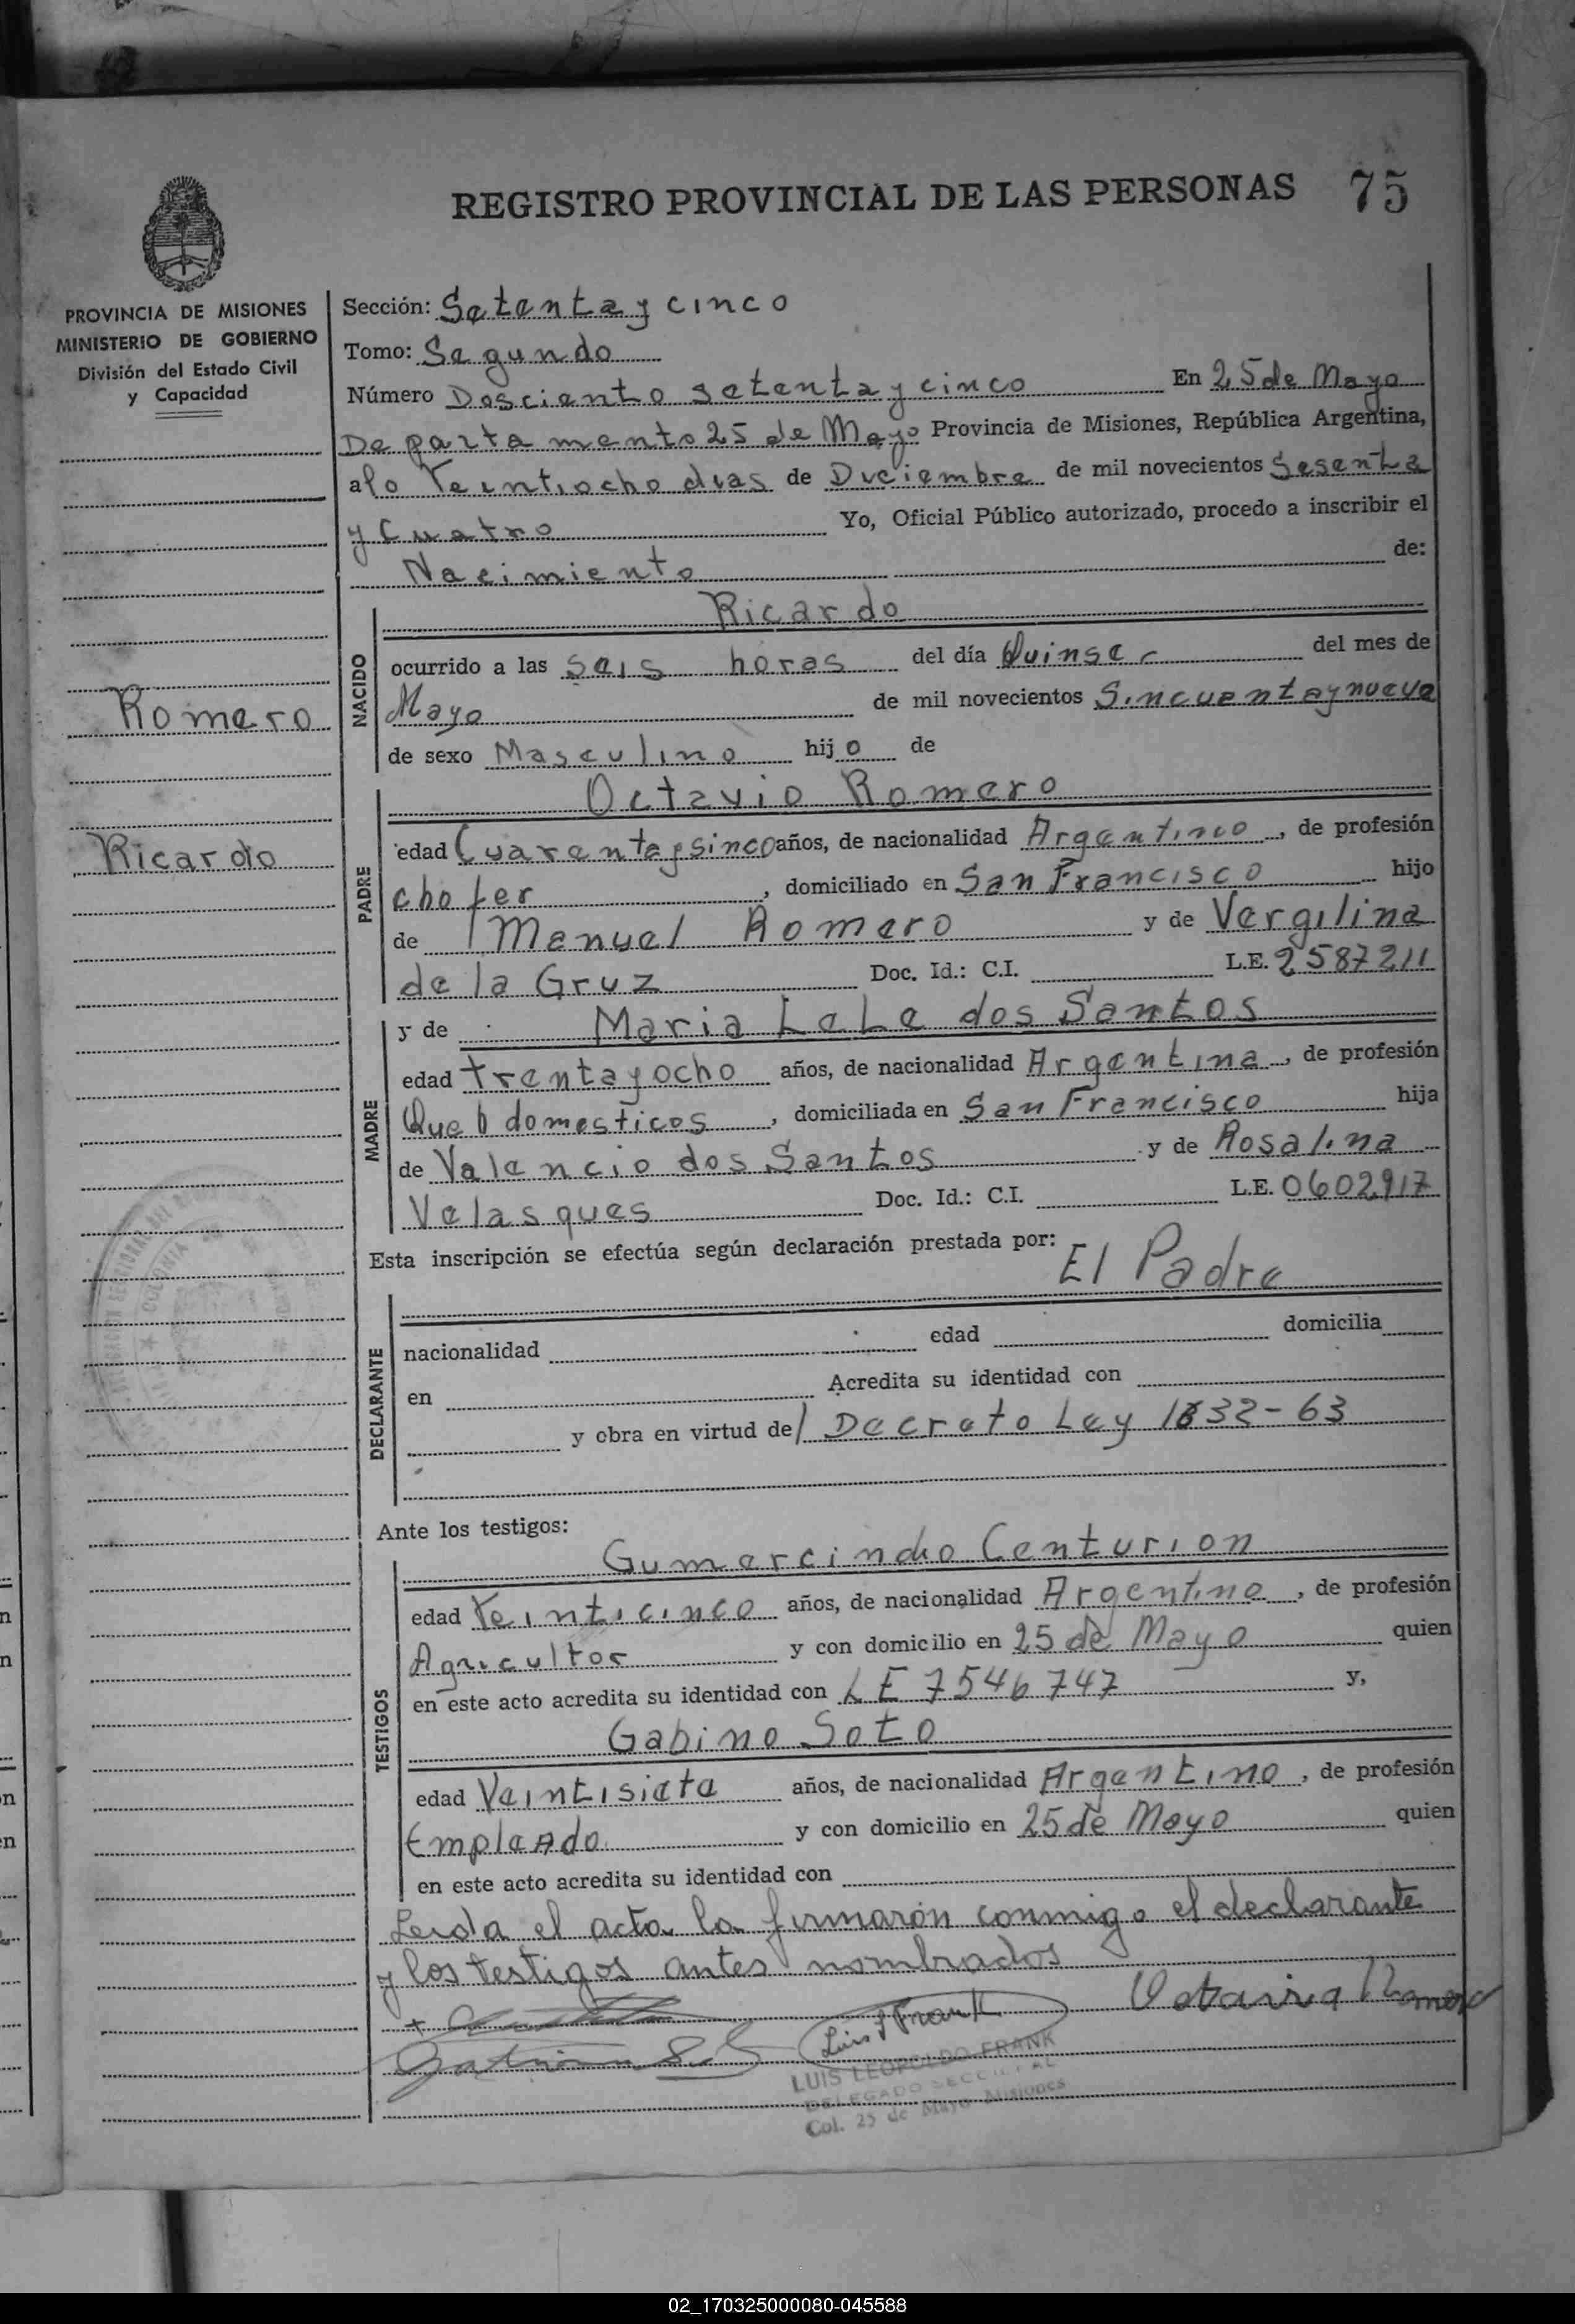 REGISTRO PROVINCIAL DE LAS PERSONAS 75
PROVINCIA DE MISIONES
MINISTERIO DE GOBIERNO
División del Estado Civil
y Capacidad
Romero
Ricardo
Sección: Setenta y cinco
Tomo: Segundo
Número Dosciento setenta y cinco En 25 de Mayo
Departamento 25 de Mayo Provincia de Misiones, República Argentina,
a lo Veintiocho dias de Diciembre de mil novecientos Sesenta
y Cuatro Yo, Oficial Público autorizado, procedo a inscribir el
Nacimiento de:
NACIDO
Ricardo
ocurrido a las seis horas del día Quinse del mes de
Mayo de mil novecientos Sincuenta y nueve
de sexo Masculino hijo de
PADRE
Octavio Romero
edad Cuarenta y sinco años, de nacionalidad Argentino, de profesión
chofer, domiciliado en San Francisco hijo
de Manuel Romero y de Vergilina
de la Gruz Doc. Id.: C.I. L.E. 2587211
MADRE
y de Maria LeLe dos Santos
edad trentayocho años, de nacionalidad Argentina, de profesión
Que domesticos, domiciliada en San Francisco hija
de Valencio dos Santos y de Rosalina
Velasques Doc. Id.: C.I. L.E. 0602917
Esta inscripción se efectúa según declaración prestada por: El Padre
DECLARANTE
nacionalidad edad domicilia
en Acredita su identidad con
y obra en virtud del Decreto Ley 1832-63
Ante los testigos:
TESTIGOS
Gumercindo Centurion
edad Veinticinco años, de nacionalidad Argentino, de profesión
Agricultor y con domicilio en 25 de Mayo quien
en este acto acredita su identidad con LE 7546747 y,
Gabino Soto
edad Veintisiete años, de nacionalidad Argentino, de profesión
Empleado y con domicilio en 25 de Mayo quien
en este acto acredita su identidad con
Leida el acta la firmarón conmigo el declarante
y los testigos antes nombrados
Luis Frank
LUIS LEOPOLDO FRANK
DELEGADO SECCIONAL
Col. 25 de Mayo Misiones
02_170325000080-045588